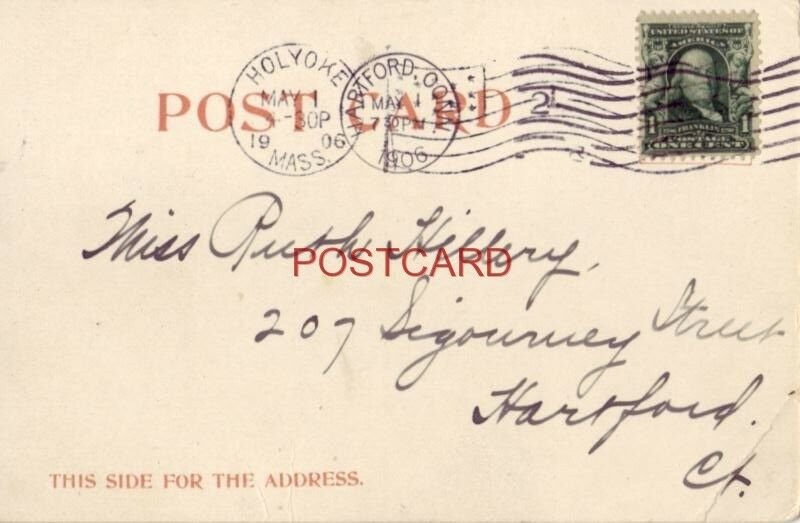 UNITED STATES OF
AMERICA
HOLYOKE
MAY 1
-30P
19 06
MASS.
HARTFORD, CONN
MAY 1
730PM
1906
2
POST CARD
1 FRANKLIN 1
ONE CENT
Miss Ruth Hillery,
POSTCARD
207 Sigourney Street
Hartford.
Ct.
THIS SIDE FOR THE ADDRESS.